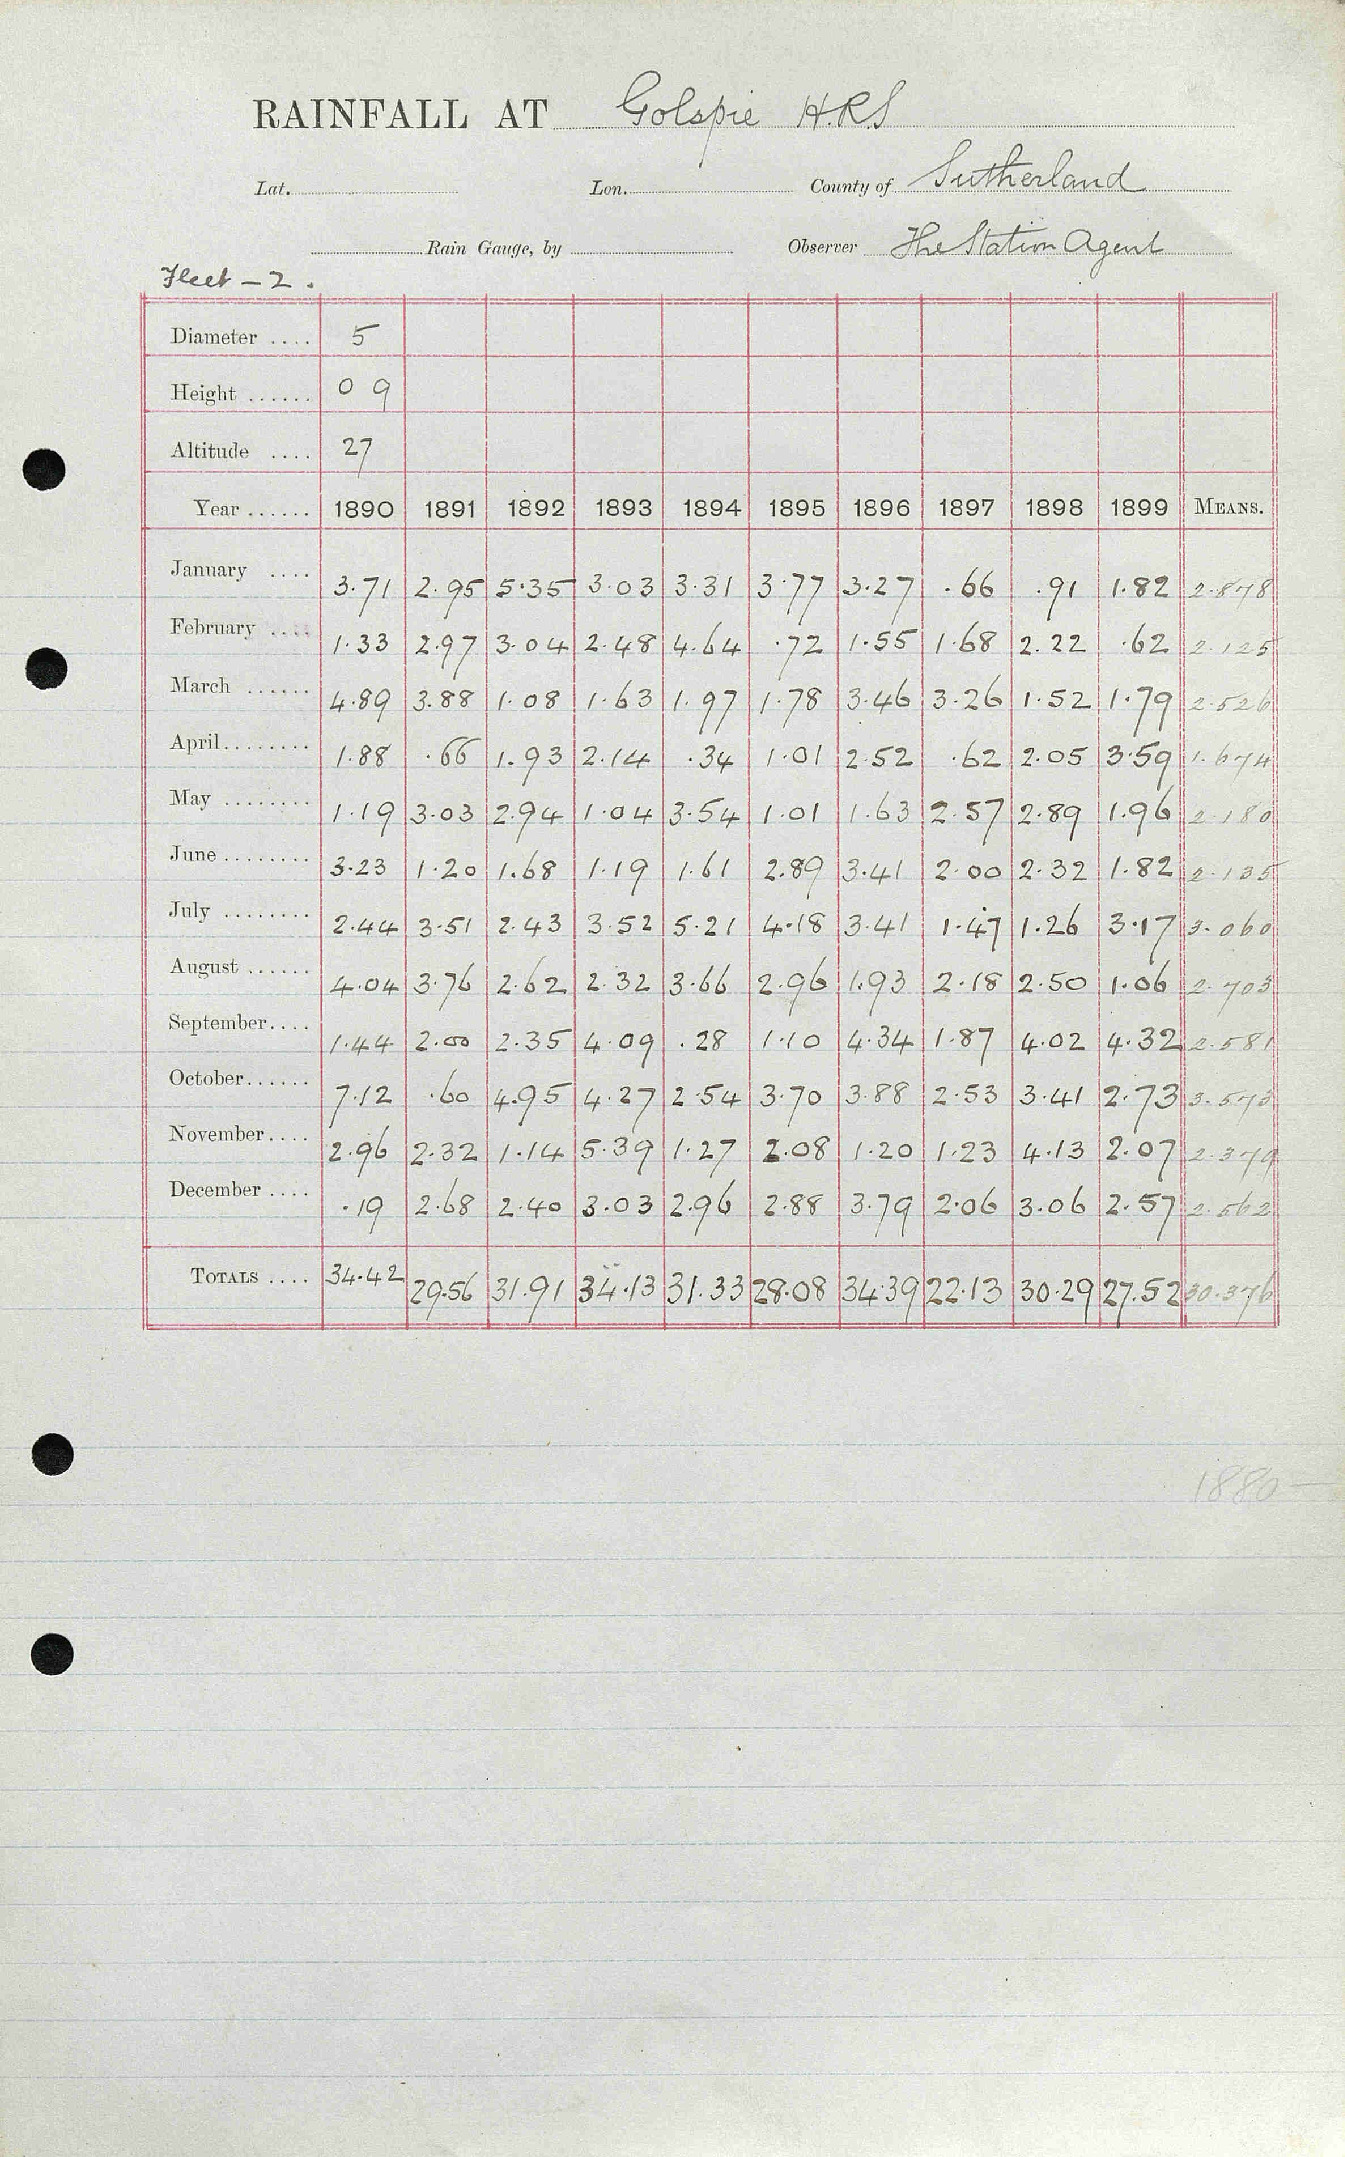 RAINFALL AT Golspie H.R.S
Lat. Lon. County of Sutherland
Rain Gauge, by Observer The Station Agent
Fleet - 2.
Diameter .... 5
Height ...... 0 9
Altitude .... 27
Year ...... 1890 1891 1892 1893 1894 1895 1896 1897 1898 1899 MEANS.
January .... 3.71 2.95 5.35 3.03 3.31 3.77 3.27 .66 .91 1.82 2.878
February .... 1.33 2.97 3.04 2.48 4.64 .72 1.55 1.68 2.22 .62 2.125
March ...... 4.89 3.88 1.08 1.63 1.97 1.78 3.46 3.26 1.52 1.79 2.526
April........ 1.88 .66 1.93 2.14 .34 1.01 2.52 .62 2.05 3.59 1.674
May ........ 1.19 3.03 2.94 1.04 3.54 1.01 1.63 2.57 2.89 1.96 2.180
June ........ 3.23 1.20 1.68 1.19 1.61 2.89 3.41 2.00 2.32 1.82 2.135
July ........ 2.44 3.51 2.43 3.52 5.21 4.18 3.41 1.47 1.26 3.17 3.060
August ...... 4.04 3.76 2.62 2.32 3.66 2.96 1.93 2.18 2.50 1.06 2.703
September.... 1.44 2.00 2.35 4.09 .28 1.10 4.34 1.87 4.02 4.32 2.581
October...... 7.12 .60 4.95 4.27 2.54 3.70 3.88 2.53 3.41 2.73 3.573
November.... 2.96 2.32 1.14 5.39 1.27 2.08 1.20 1.23 4.13 2.07 2.379
December .... .19 2.68 2.40 3.03 2.96 2.88 3.79 2.06 3.06 2.57 2.562
TOTALS .... 34.42 29.56 31.91 34.13 31.33 28.08 34.39 22.13 30.29 27.52 30.376
1880 —